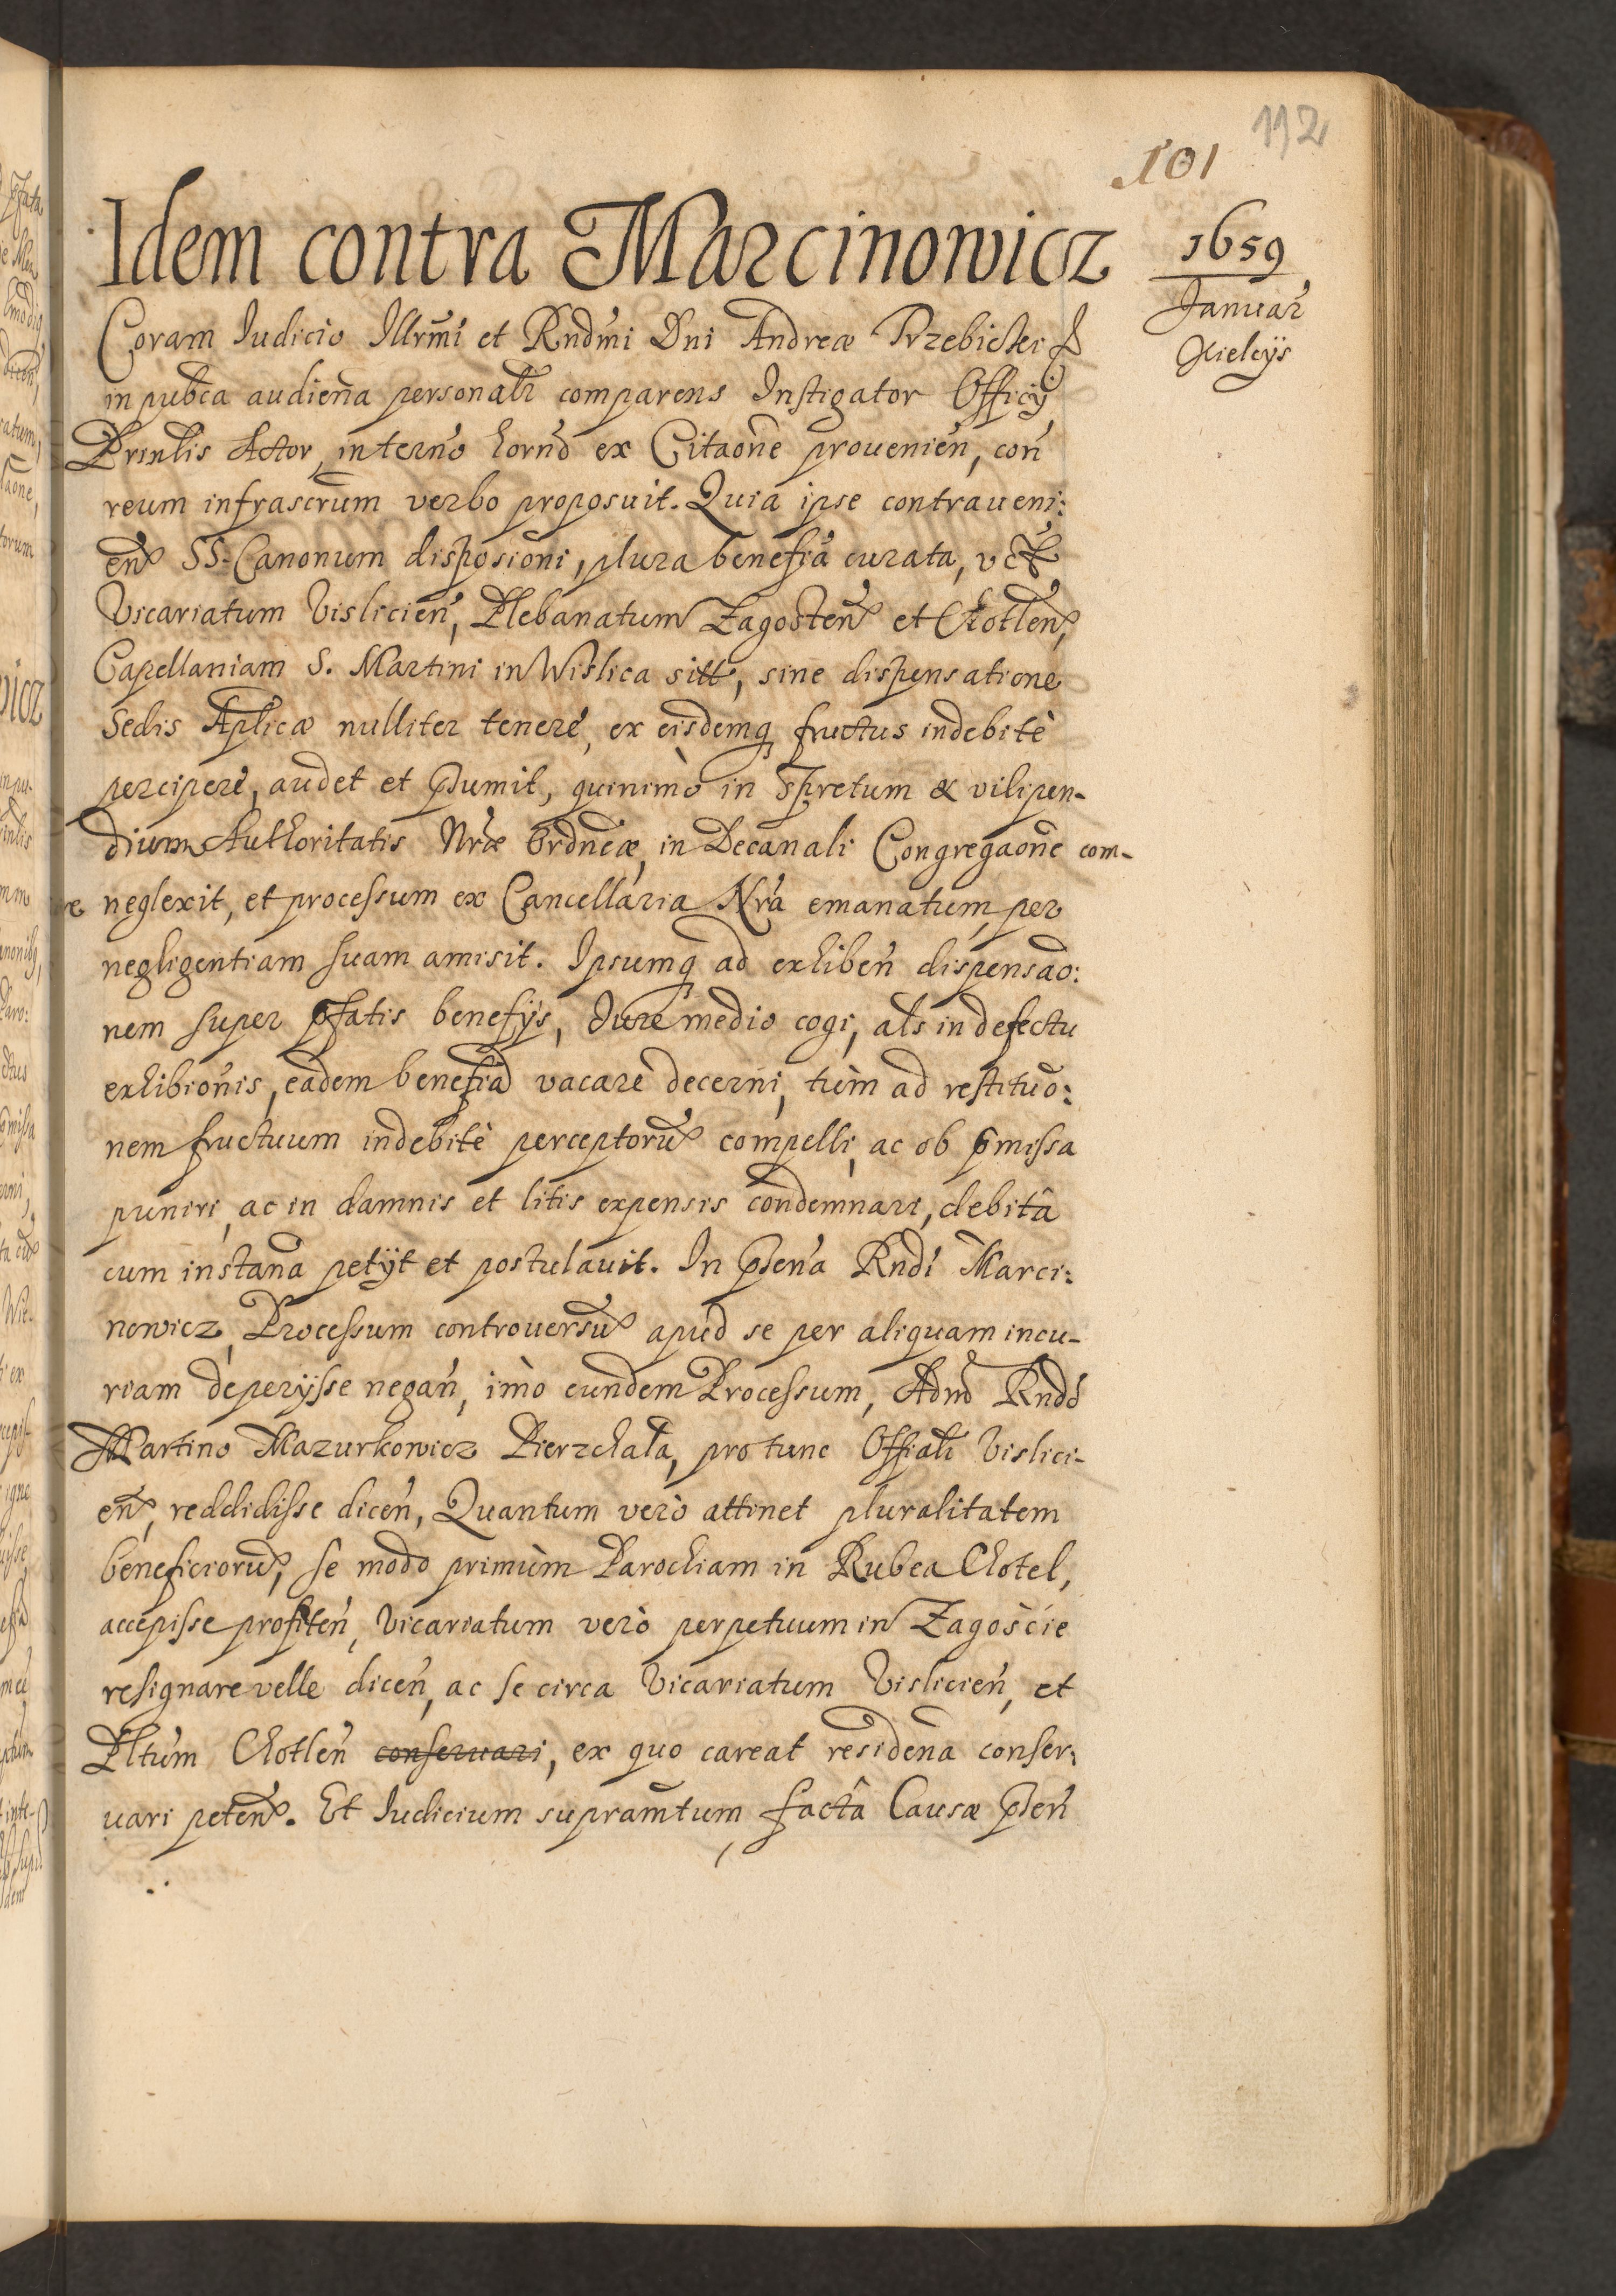 112
101
Idem contra Marcinowicz
1659
Januar
Kielcijs
Coram Iudicio Illrmi et Rndmi Dni Andreæ Trzebicki
in pubca audiena personalr comparens Instigator Officij
Prnlis Actor, in terno hornd ex Citaone prouenien, con
reum infrascrum verbo proposuit. Quia ipse contraueni:
en SS. Canonum disposioni, plura benefia curata, vct
Vicariatum Vislicien, Plebanatum Zagosten et Chotlen,
Capellaniam S. Martini in Wislica sitt, sine dispensatione
Sedis Aplicæ nulliter tenere, ex eisdemq fructus indebitè
percipere, audet et psumit, quinimò in spretum & vilipen-
dium Authoritatis Nræ Ordneæ, in Decanali Congregaone com-
re neglexit, et processum ex Cancellaria Nra emanatum, per
negligentiam suam amisit. Ipsumq ad exhiben dispensao:
nem super pfatis benefijs, Jure medio cogi, als in defectu
exhibionis, eadem benefia vacare decerni, tùm ad restituo:
nem fructuum indebitè perceptoru compelli, ac ob pmissa
puniri, ac in damnis et litis expensis condemnari, debitâ
cum instana petijt et postulauit. In psena Rndi Marci:
nowicz, Processum controuersu apud se per aliquam incu-
riam deperijsse negan, imò eundem Processum, Admd Rndo
Martino Mazurkowicz Pierzchała, pro tunc Offiali Vislici-
en, reddidisse dicen, Quantum verò attinet pluralitatem
beneficioru, se modo primùm Parochiam in Rubea Chotel,
accepisse profiten, Vicariatum verò perpetuum in Zagoście
resignare velle dicen, ac se circa Vicariatum Vislicien, et
Pltum Chotlen conseruari, ex quo careat residena conser:
uari peten. Et Iudicium supramtum, factâ Causæ psen